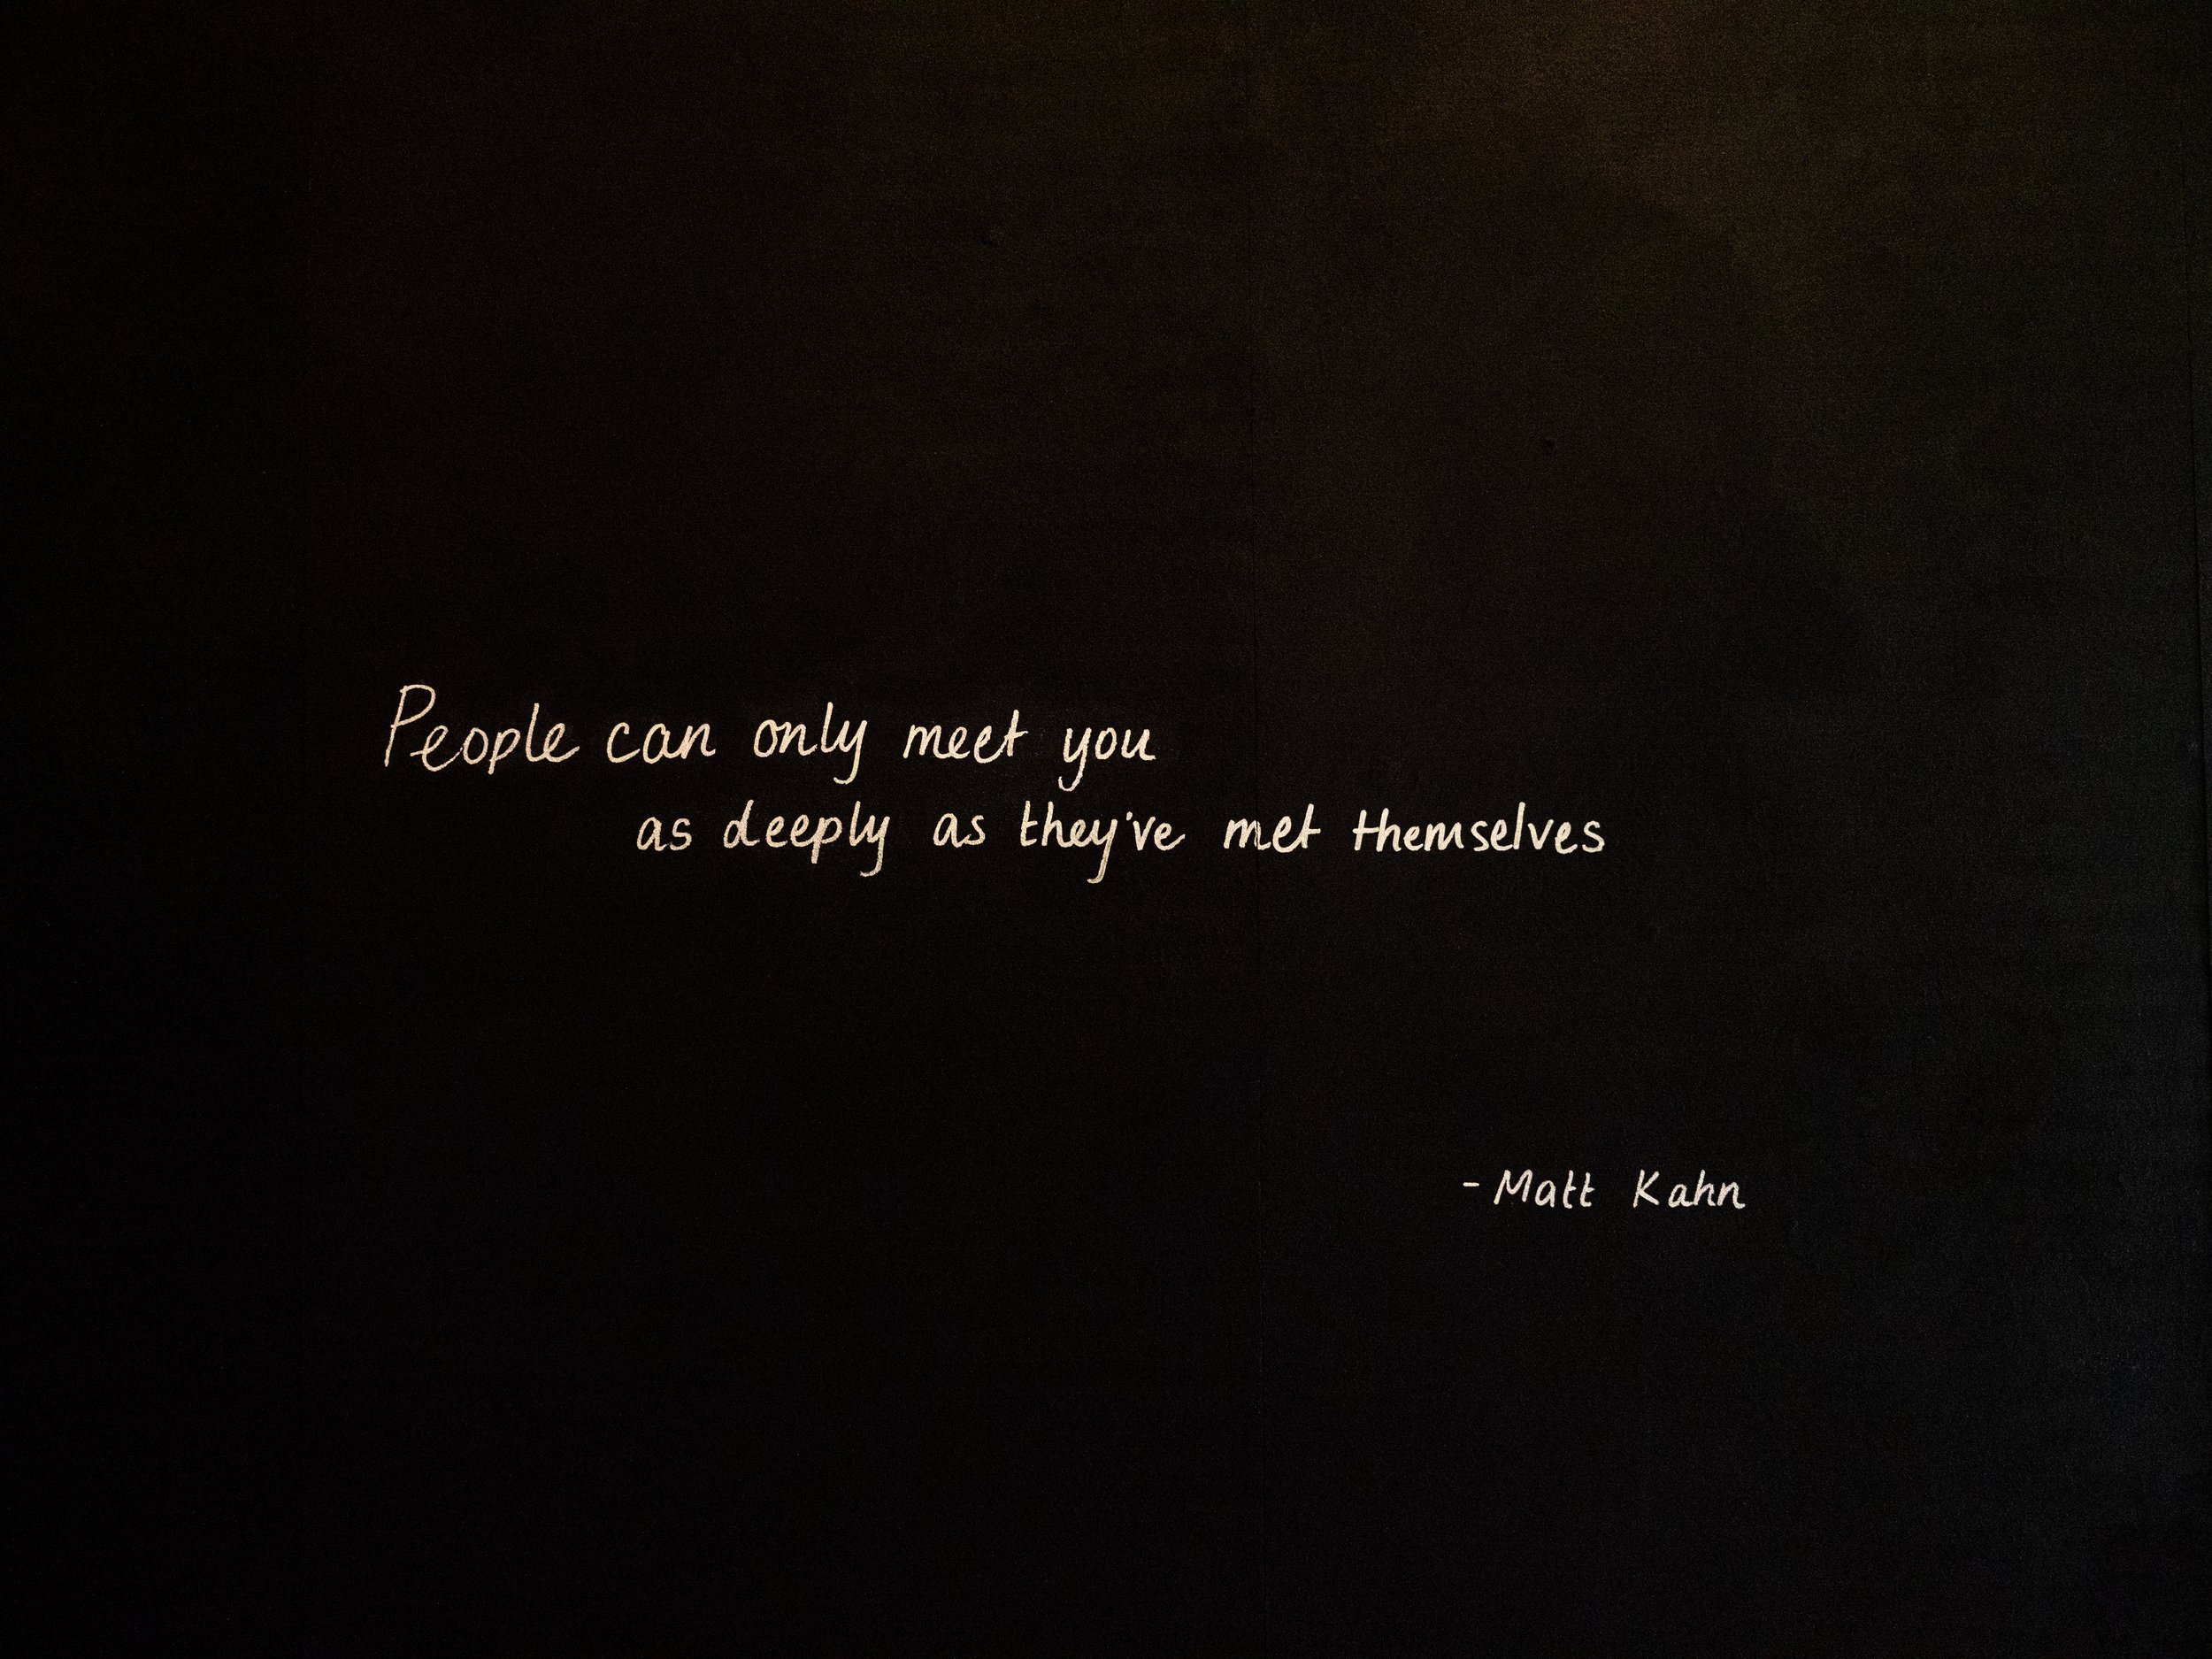 People can only meet you
as deeply as they've met themselves
- Matt Kahn